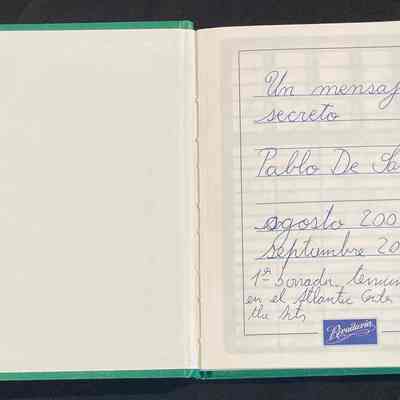 Un mensaj
secreto
Pablo De Sa
agosto 200
septiembre 20
1er borrador, termin
en el Atlantic Center
the Arts
Rivadavia